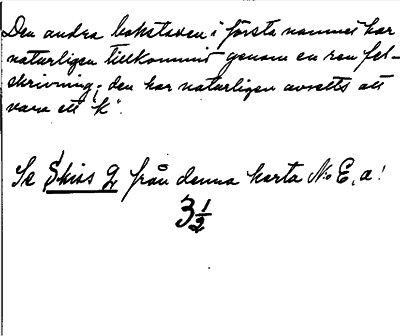 Den andra bokstaven i första namnet har
naturligen tillkommit genom en ren fel-
skrivning; den har naturligen avsetts att
vara ett "k".
Se Skiss 2 från denna karta No E, a!
3 1/2